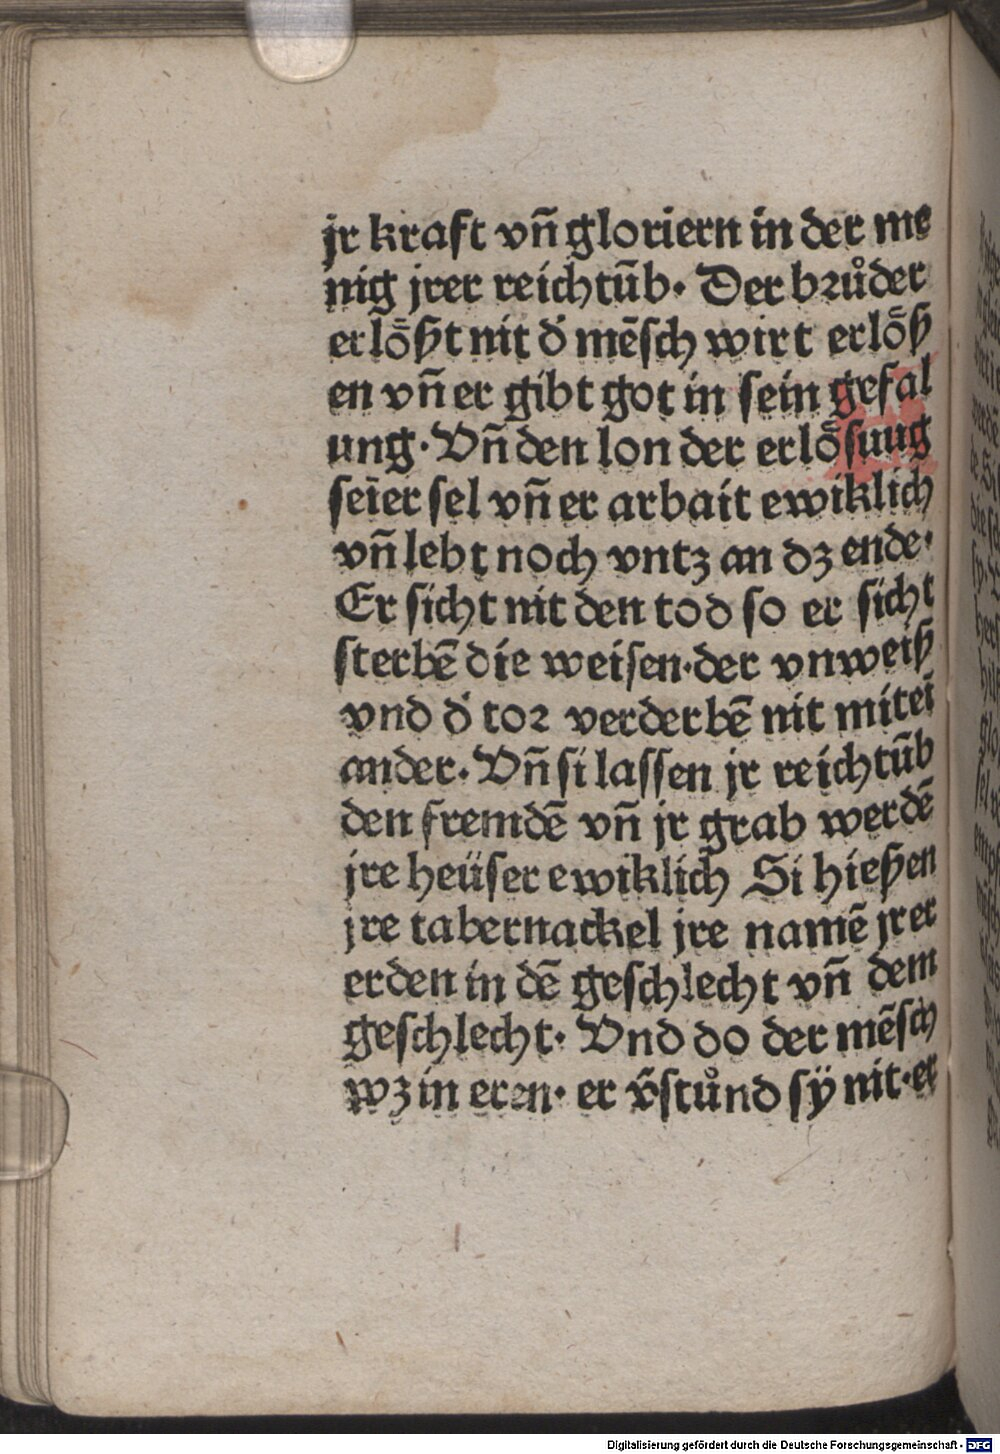 jr kraft vñ gloriern in der me
nig jrer reichtūb. Der brůder
erlȫßt nit d̕ mēsch wirt erlȫß
en vñ er gibt got in sein gefal
ung. Vñ den lon der erlȫsung
seīer sel vñ er arbait ewiklich
vñ lebt noch vntz an dz ende.
Er sicht nit den tod so er sicht
sterbē die weisen. der vnweiß
vnd d̕ tor verderbē nit mitei̅
ander. Vñ si lassen jr reichtūb
den fremdē vñ jr grab werdē
jre heüser ewiklich Si hießen
jre tabernackel jre namē jrer
erden in dē geschlecht vñ dem
geschlecht. Vnd do der mēsch
wz in eren. er v̄stůnd sÿ nit. er
Digitalisierung gefördert durch die Deutsche Forschungsgemeinschaft - DFG